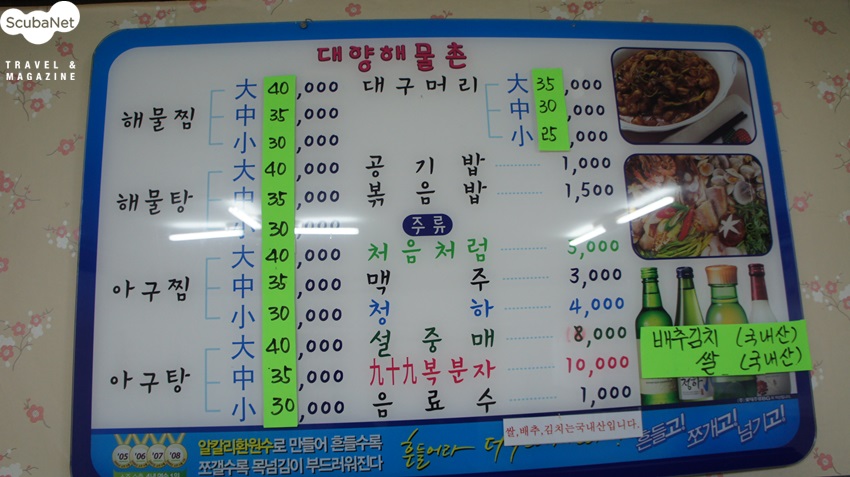 ScubaNet
TRAVEL &
MAGAZINE
대양해물촌
해물찜 大 40,000
中 35,000
小 30,000
해물탕 大 40,000
中 35,000
小 30,000
아구찜 大 40,000
中 35,000
小 30,000
아구탕 大 40,000
中 35,000
小 30,000
대구머리 大 35,000
中 30,000
小 25,000
공기밥 1,000
볶음밥 1,500
주류
처음처럼 3,000
맥주 3,000
청하 4,000
설중매 8,000
九十九복분자 10,000
음료수 1,000
배추김치 (국내산)
쌀 (국내산)
쌀,배추,김치는국내산입니다.
'05 '06 '07 '08
알칼리환원수로 만들어 흔들수록
쪼갤수록 목넘김이 부드러워진다
흔들어라
흔들고! 쪼개고! 넘기고!
청하